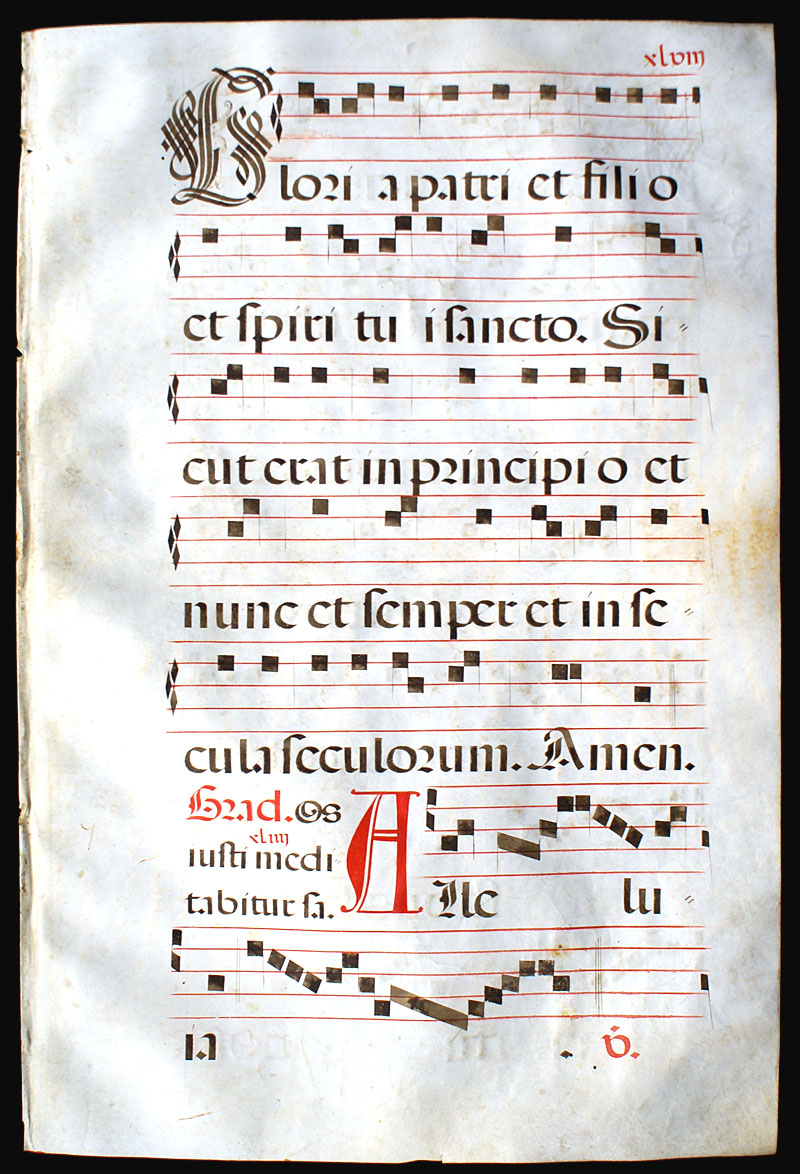 xlviij
Glori a patri et fili o
et spiri tu i sancto. Si
cut erat in principi o et
nunc et semper et in se
cula seculorum. Amen.
Grad. Os
iusti medi
xliiij
tabitur sa.
Alle lu
ia . V.